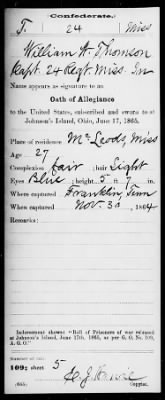 Confederate.
T. 24 Miss
William A Thomson
Capt. 24 Regt. Miss. Inf
Name appears as signature to an
Oath of Allegiance
to the United States, subscribed and sworn to at
Johnson's Island, Ohio, June 17, 1865.
Place of residence McLeods, Miss
Age 27
Complexion fair ; hair Light
Eyes Blue ; height 5 ft. 7 in.
Where captured Franklin, Tenn
When captured Nov. 30, 1864
Remarks:
Indorsement shows: "Roll of Prisoners of war released
at Johnson's Island, June 17th, 1865, as per G. O. No. 109,
A. G. O."
Number of roll:
109; sheet 5
(655) Copyist.